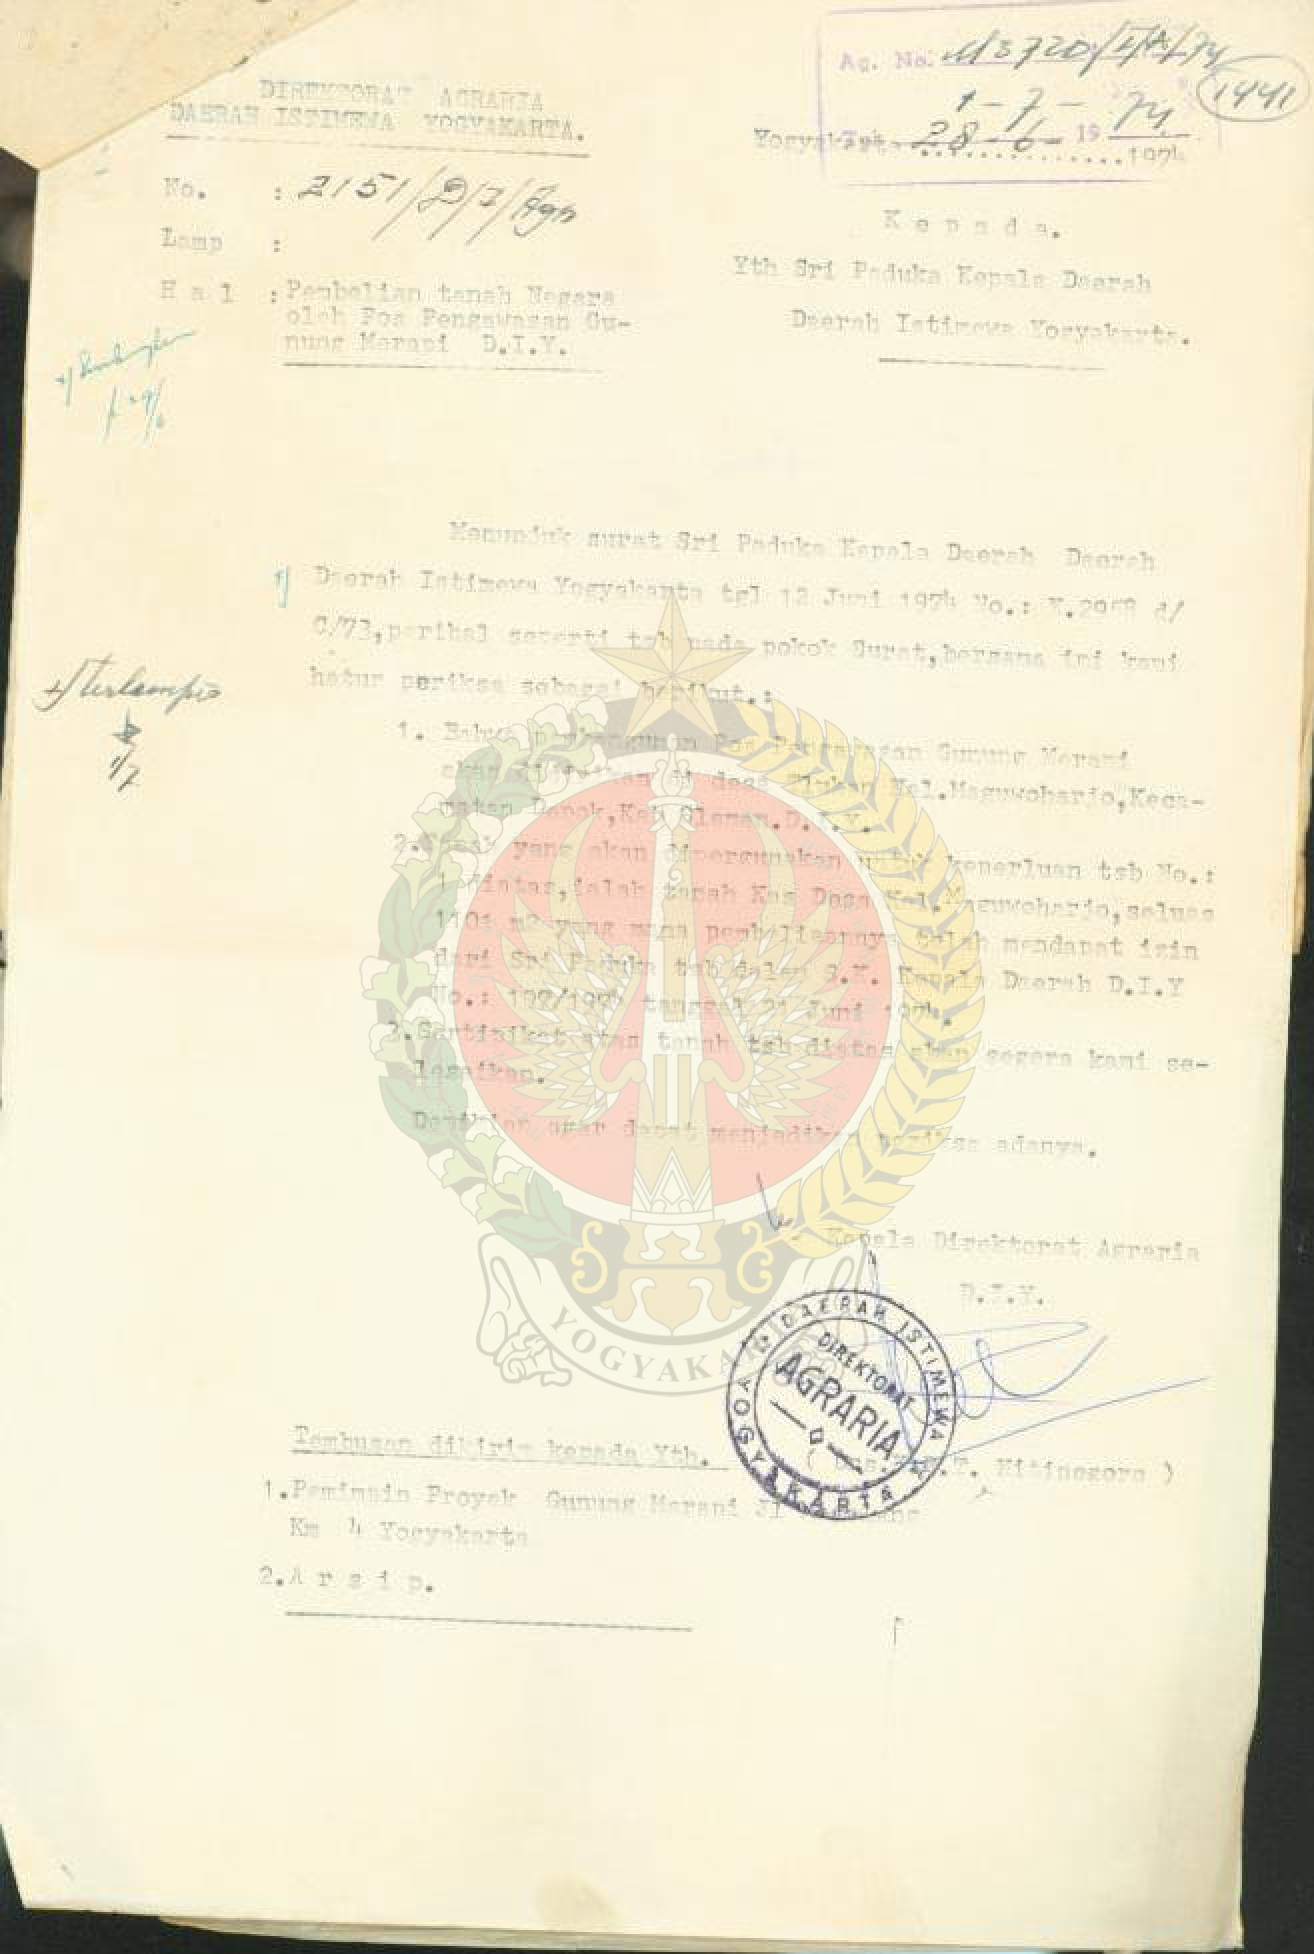 Ag. No. M3720/IA/74
1441
1-7-1974
DIREKTORAT AGRARIA
DAERAH ISTIMEWA YOGYAKARTA.
Yogyakarta 28-6-1974
No. : 2151/D/I/Agr
Lamp :
H a l : Pembelian tanah Negara
oleh Pos Pengawasan Gu-
nung Merapi D.I.Y.
K e p a d a.
Yth Sri Paduka Kepala Daerah
Daerah Istimewa Yogyakarta.
Menunjuk surat Sri Paduka Kepala Daerah Daerah
Daerah Istimewa Yogyakarta tgl 12 Juni 1974 No.: K.2958 d/
C/73,perihal seperti tsb pada pokok Surat,bersama ini kami
hatur periksa sebagai berikut.:
terlampir
1/7
1. Bahwa pembangunan Pos Pengawasan Gunung Merapi
akan di desa Kel.Maguwoharjo,Keca-
matan Depok,Kab Sleman.D.I.Y.
2.Tanah yang akan dipergunakan untuk keperluan tsb No.:
1 diatas,ialah tanah Kas Desa Kel.Maguwoharjo,seluas
1101 m2 yang mana pembeliannya telah mendapat izin
dari Sri Paduka tsb dalam S.K. Kepala Daerah D.I.Y
No.: 197/1974 tanggal 21 Juni 1974.
3.Sertipikat atas tanah tsb diatas akan segera kami se-
lesaikan.
Demikian agar dapat menjadikan periksa adanya.
Kepala Direktorat Agraria
D.I.Y.
DAERAH ISTIMEWA YOGYAKARTA
DIREKTORAT
AGRARIA
YOGYAKARTA
K.R.T. Nitinegoro )
Tembusan dikirim kepada Yth.
1.Pemimpin Proyek Gunung Merapi Jl
Km 4 Yogyakarta
2.A r s i p.